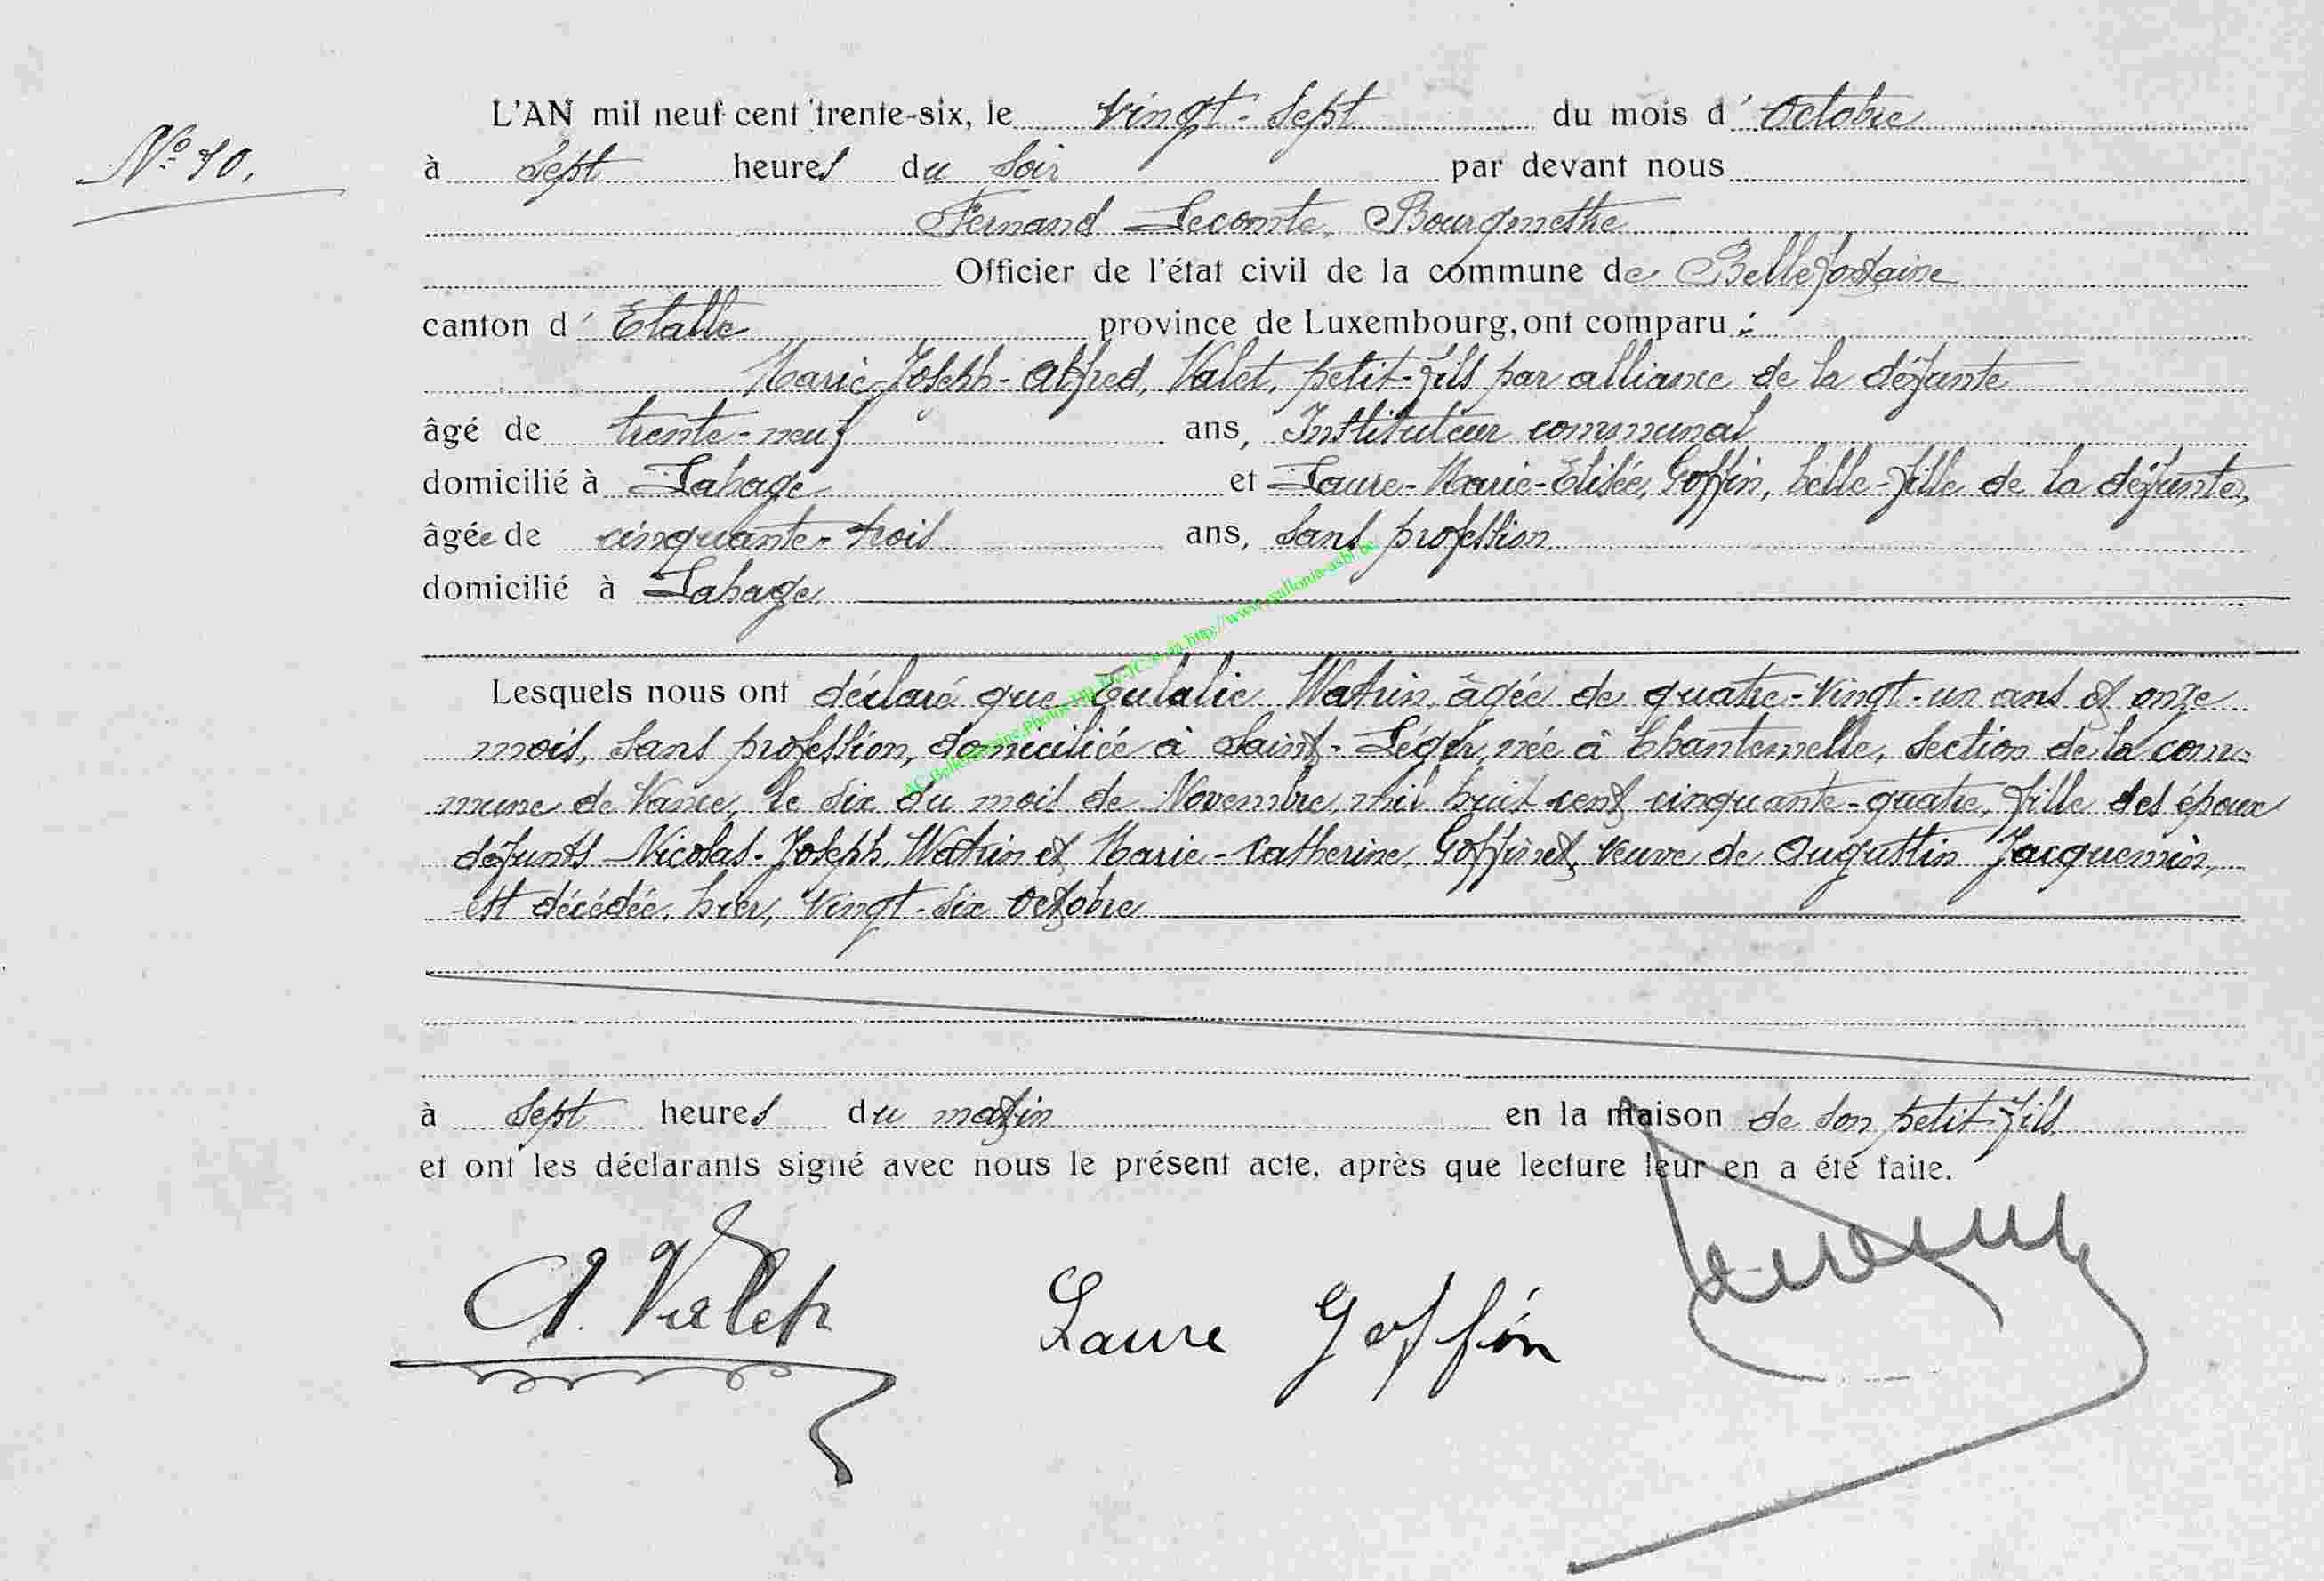 L'AN mil neuf cent trente-six, le vingt-sept du mois d'Octobre
N° 10.
à sept heures du soir par devant nous
Fernand Lecomte, Bourgmestre
Officier de l'état civil de la commune de Bellefontaine
canton d'Etalle province de Luxembourg, ont comparu :
Marie-Joseph-Alfred, Valet, petit-fils par alliance de la défunte
âgé de trente-neuf ans, Instituteur communal
domicilié à Lahage et Laure-Marie-Elisée, Goffin, belle-fille de la défunte,
âgée de cinquante-trois ans, sans profession
domicilié à Lahage
Lesquels nous ont déclaré que Eulalie Watrin, âgée de quatre-vingt-un ans et onze
mois, sans profession, domiciliée à Saint-Léger, née à Chantemelle, section de la com-
mune de Vance, le six du mois de Novembre, mil huit cent cinquante-quatre, fille des époux
défunts Nicolas-Joseph, Watrin et Marie-Catherine, Goffinet, veuve de Augustin Jacquemin,
est décédée, hier, vingt-six octobre
à sept heures du matin en la maison de son petit-fils
et ont les déclarants signé avec nous le présent acte, après que lecture leur en a été faite.
A. Valet
Laure Goffin